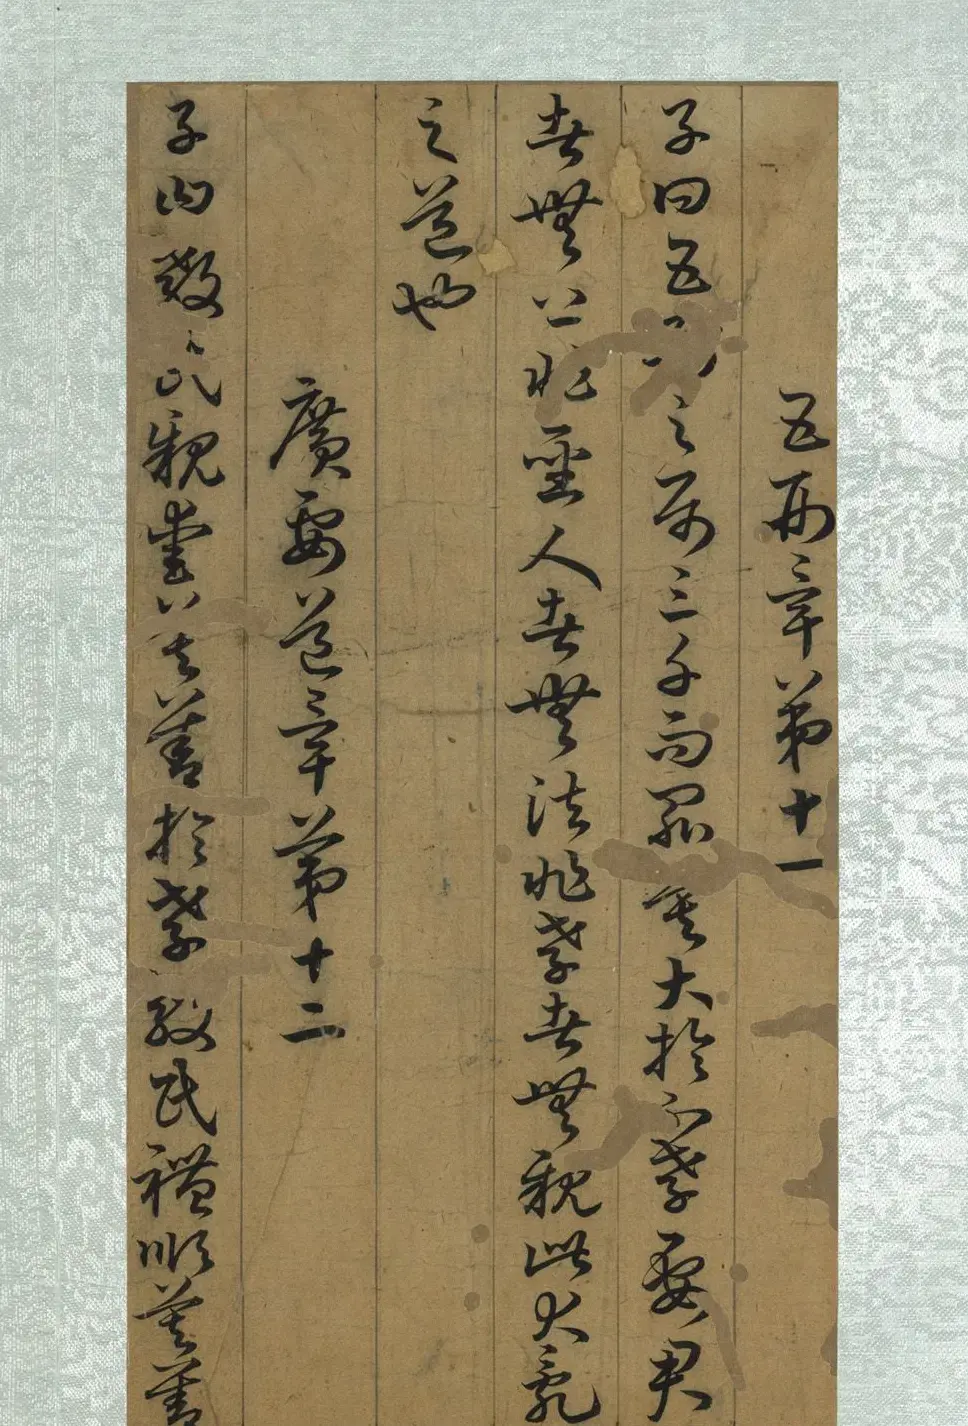 五刑章第十一
子曰五刑之屬三千而罪莫大於不孝要君
者無上非聖人者無法非孝者無親此大亂
之道也
廣要道章第十二
子曰教民親愛莫善於孝教民禮順莫善